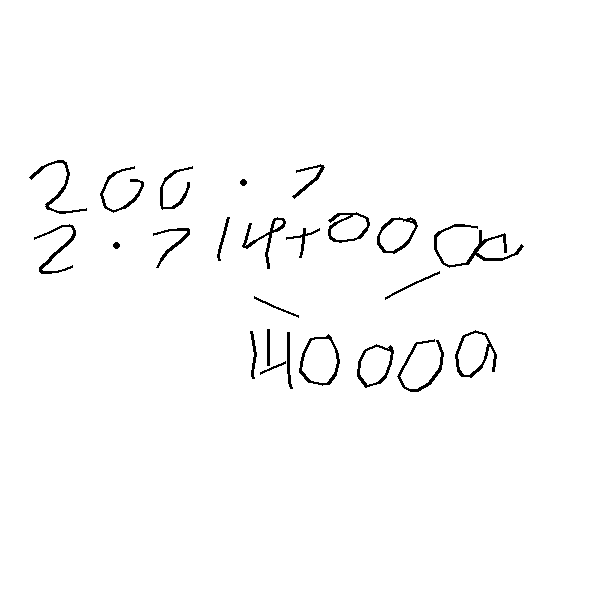 200 · 7
2 · 7 14+0000
140000